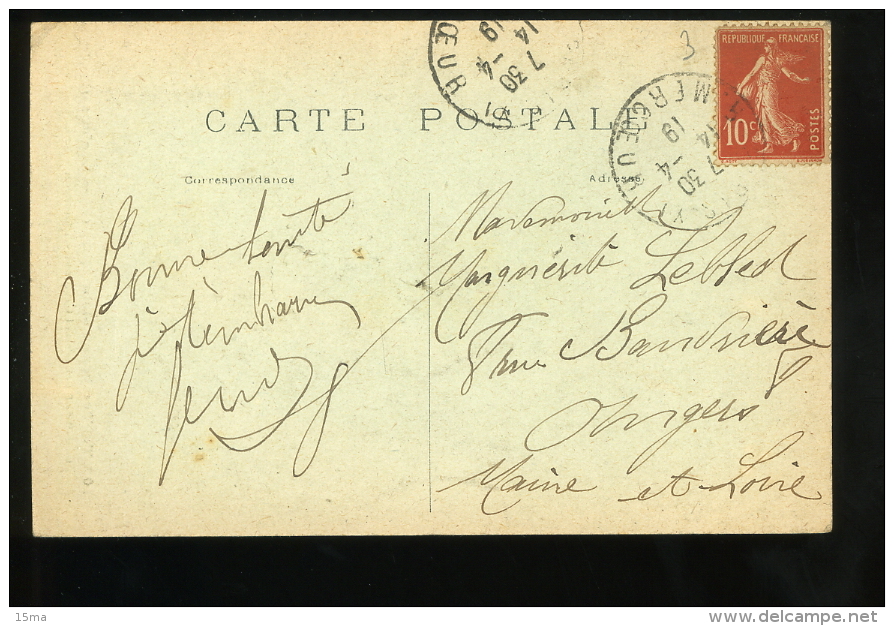 CARTE POSTALE
Correspondance
Adresse
3
RÉPUBLIQUE FRANÇAISE
10c
POSTES
MERCŒUR
7 30
19 -4
14
ŒUR
7 30
19 -4
14
Bonne santé
je t'embrasse
Mademoiselle
Marguerite Lebled
rue Baudrière
Angers
Maine et Loire
15ma
www.delcampe.net